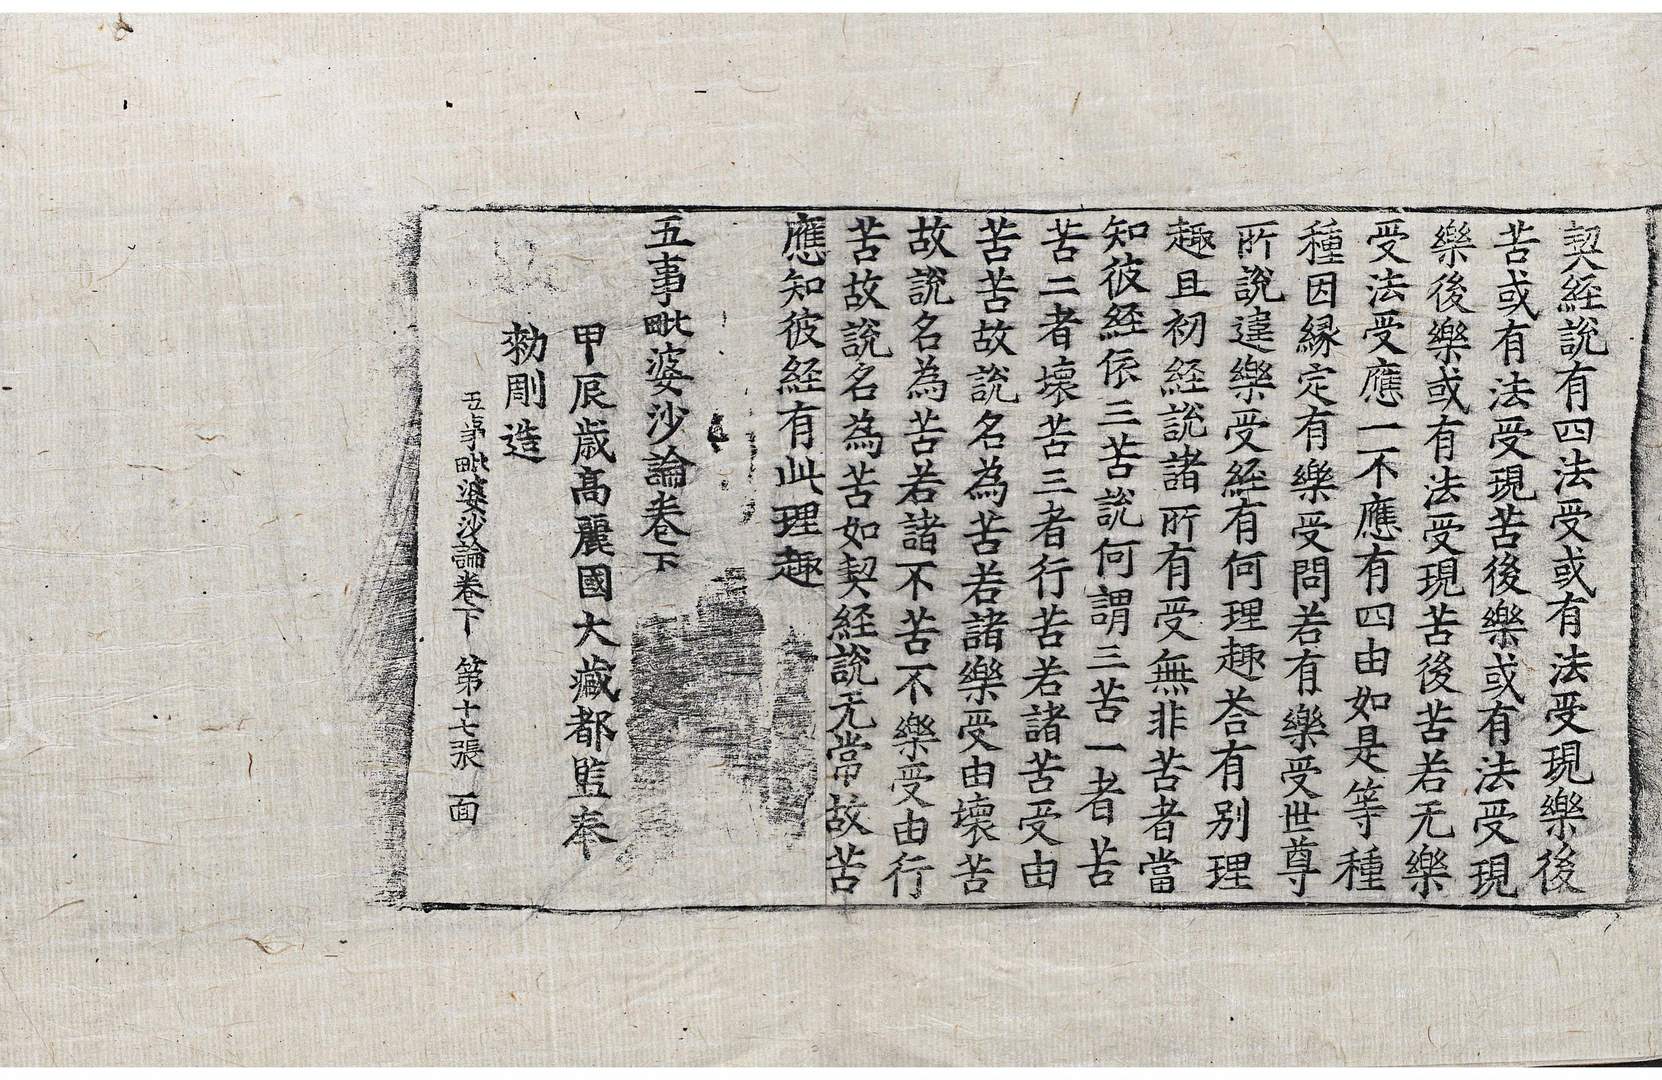 契經說有四法受或有法受現樂後
苦或有法受現苦後樂或有法受現
樂後樂或有法受現苦後苦若无樂
受法受應一不應有四由如是等種
種因緣定有樂受問若有樂受世尊
所說違樂受經有何理趣荅有別理
趣且初經說諸所有受無非苦者當
知彼經依三苦說何謂三苦一者苦
苦二者壞苦三者行苦若諸苦受由
苦苦故說名為苦若諸樂受由壞苦
故說名為苦若諸不苦不樂受由行
苦故說名為苦如契經說无常故苦
應知彼經有此理趣
五事毗婆沙論卷下
甲辰歲高麗國大藏都監奉
勑彫造
五事毗婆沙論卷下 第十七張 一面